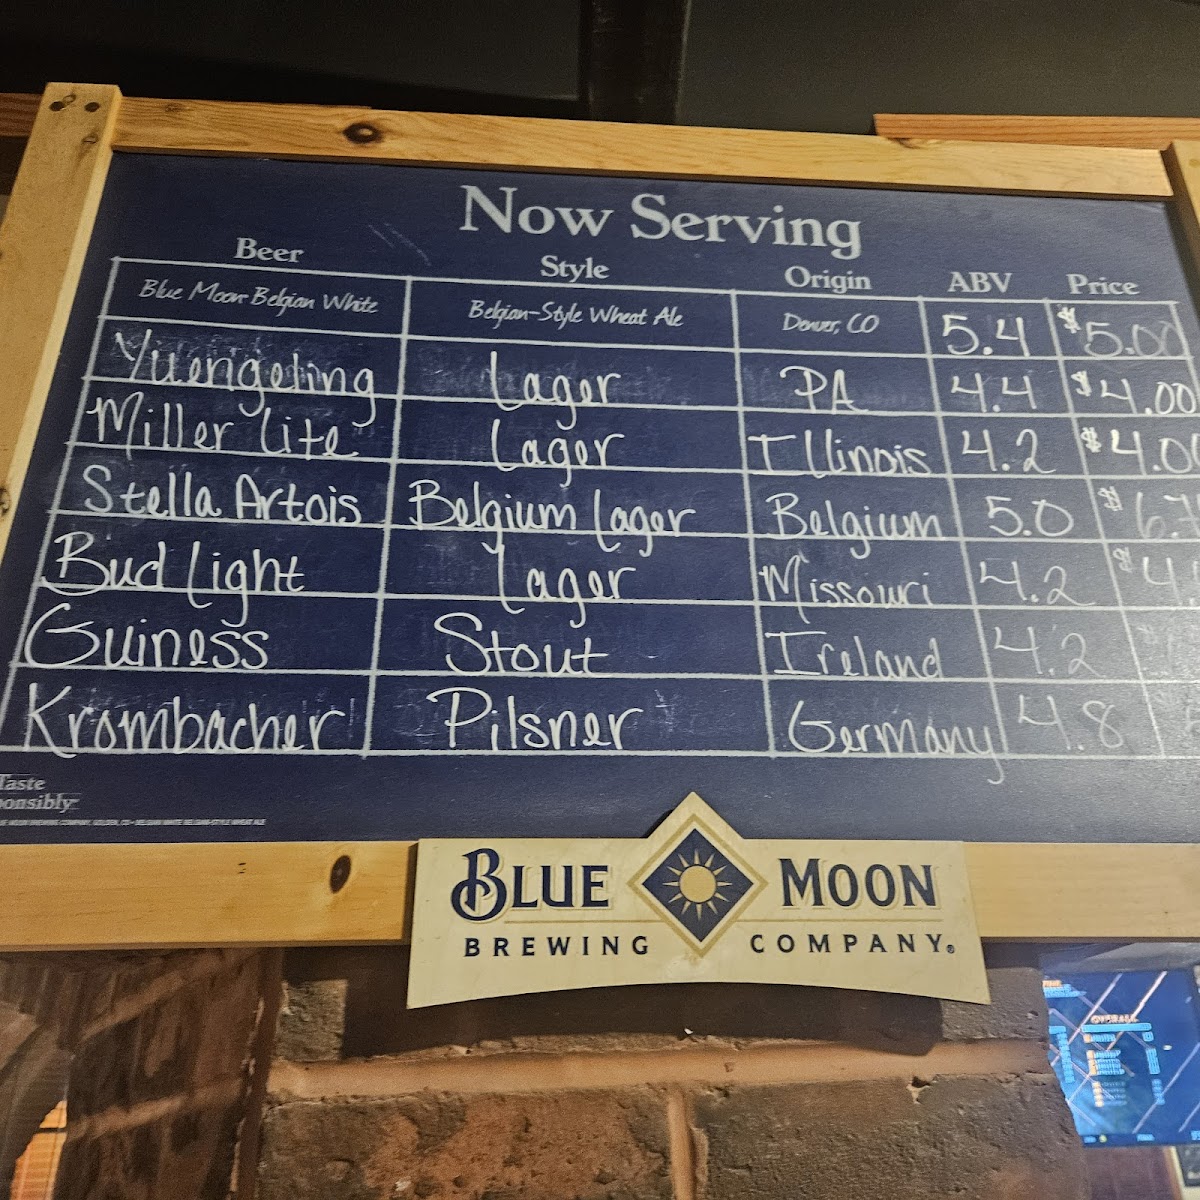 Now Serving
Beer Style Origin ABV Price
Blue Moon Belgian White Belgian-Style Wheat Ale Denver, CO 5.4 $5.00
Yuengeling Lager PA 4.4 $4.00
Miller Lite Lager Illinois 4.2 $4.00
Stella Artois Belgium Lager Belgium 5.0 $6.7
Bud Light Lager Missouri 4.2 $4.
Guiness Stout Ireland 4.2
Krombacher Pilsner Germany 4.8
Taste
ponsibly
BLUE MOON
BREWING COMPANY®
OVERALL